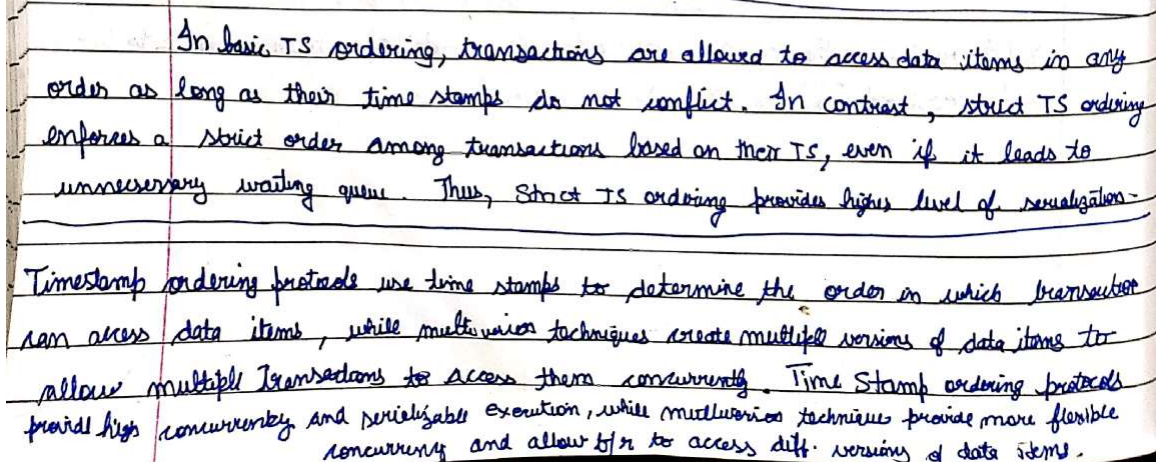 In basic TS ordering, transactions are allowed to access data items in any
order as long as their time stamps do not conflict. In contrast, strict TS ordering
enforces a strict order among transactions based on their TS, even if it leads to
unnecserrary waiting queue. Thus, Strict TS ordring provides higher level of serialization-
Timestamp ordering protocols use time stamps to determine the order in which transaction
can access data items, while multiversion techniques create multiple versions of data items to
allow multiple Transactions to access them concurrently. Time Stamp ordering protocols
provide high concurrenky and serializable execution, while multiversion techniques provide more flexible
concurrency and allow to access diff. versions of data items.